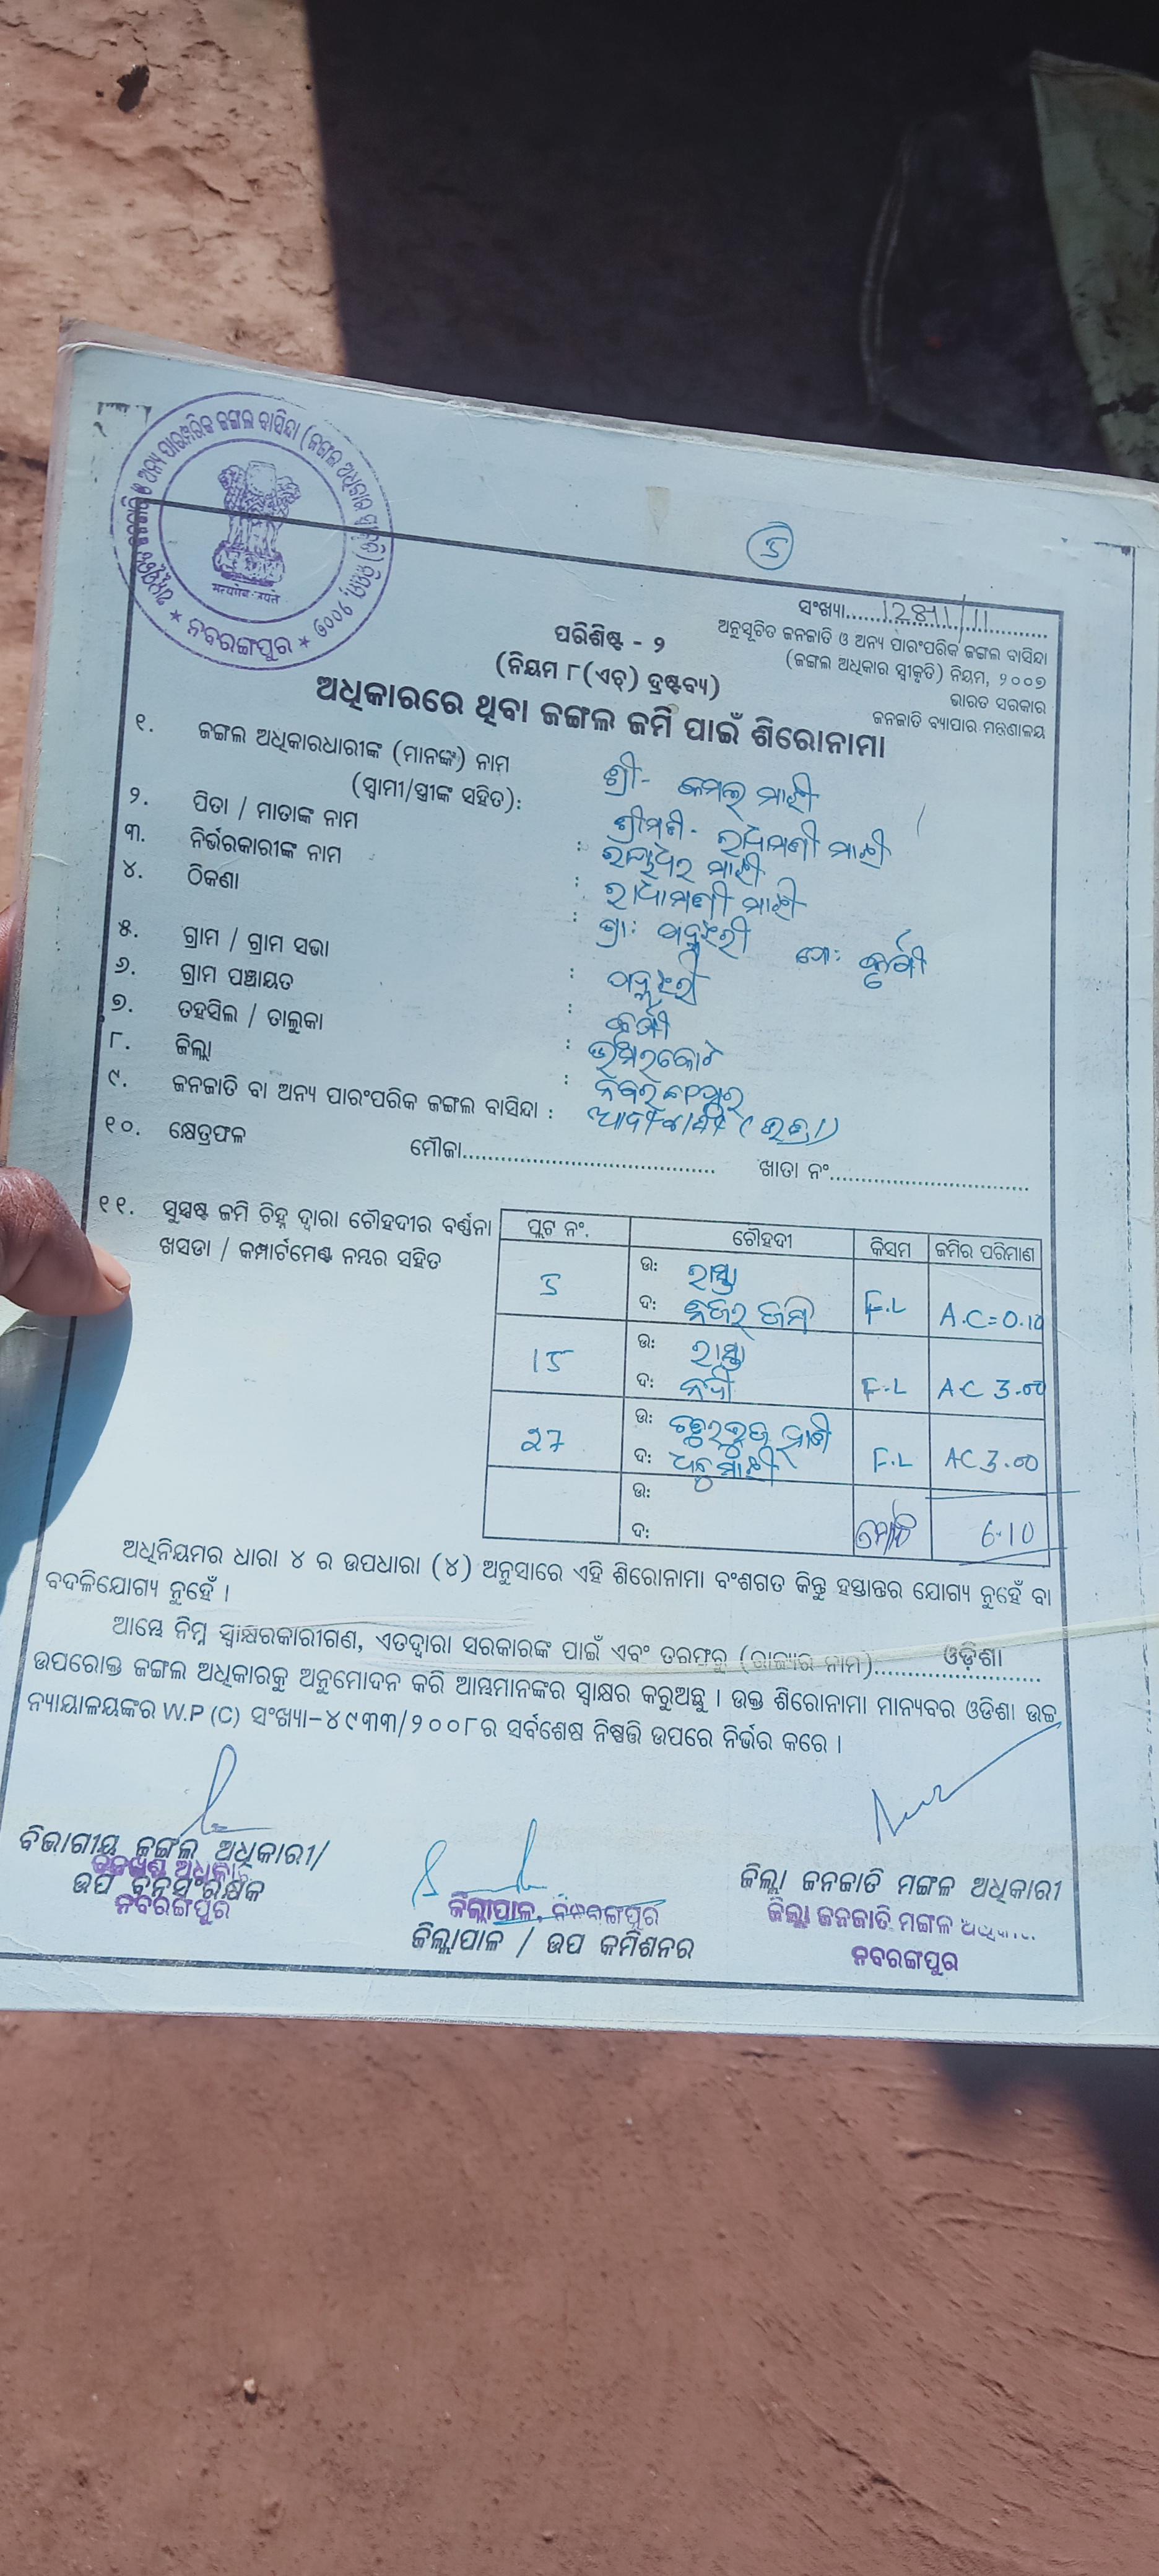 ଅନୁସୂଚିତ ଜନଜାତି ଓ ଅନ୍ୟ ପାରମ୍ପରିକ ଜଙ୍ଗଲ ବାସିନ୍ଦା (ଜଙ୍ଗଲ ଅଧିକାର ସ୍ୱୀକୃତି) ନିୟମ, ୨୦୦୭
★ ନବରଙ୍ଗପୁର ★
5
ସଂଖ୍ୟା 12811/11
ଅନୁସୂଚିତ ଜନଜାତି ଓ ଅନ୍ୟ ପାରଂପରିକ ଜଙ୍ଗଲ ବାସିନ୍ଦା
(ଜଙ୍ଗଲ ଅଧିକାର ସ୍ୱୀକୃତି) ନିୟମ, ୨୦୦୭
ଭାରତ ସରକାର
ଜନଜାତି ବ୍ୟାପାର ମନ୍ତ୍ରଣାଳୟ
ପରିଶିଷ୍ଟ - ୨
(ନିୟମ ୮(ଏଚ୍) ଦ୍ରଷ୍ଟବ୍ୟ)
ଅଧିକାରରେ ଥିବା ଜଙ୍ଗଲ ଜମି ପାଇଁ ଶିରୋନାମା
୧. ଜଙ୍ଗଲ ଅଧିକାରଧାରୀଙ୍କ (ମାନଙ୍କ) ନାମ ଶ୍ରୀ- କମଲ ମାଝୀ
(ସ୍ୱାମୀ/ସ୍ତ୍ରୀଙ୍କ ସହିତ): ଶ୍ରୀମତି- ରାଧାମଣୀ ମାଝୀ
୨. ପିତା / ମାତାଙ୍କ ନାମ : ମାଝୀ
୩. ନିର୍ଭରକାରୀଙ୍କ ନାମ : ରାଧାମଣୀ ମାଝୀ
୪. ଠିକଣା : ଗ୍ରା: ପୋ:
୫. ଗ୍ରାମ / ଗ୍ରାମ ସଭା :
୬. ଗ୍ରାମ ପଞ୍ଚାୟତ :
୭. ତହସିଲ / ତାଲୁକା : ଉମରକୋଟ
୮. ଜିଲ୍ଲା : ନବରଙ୍ଗପୁର
୯. ଜନଜାତି ବା ଅନ୍ୟ ପାରଂପରିକ ଜଙ୍ଗଲ ବାସିନ୍ଦା : ଆଦିବାସୀ
୧୦. କ୍ଷେତ୍ରଫଳ ମୌଜା ଖାତା ନଂ
୧୧. ସୁସ୍ପଷ୍ଟ ଜମି ଚିହ୍ନ ଦ୍ୱାରା ଚୌହଦୀର ବର୍ଣ୍ଣନା
ଖସଡା / କମ୍ପାର୍ଟମେଣ୍ଟ ନମ୍ବର ସହିତ
ପ୍ଲଟ ନଂ. ଚୌହଦୀ କିସମ ଜମିର ପରିମାଣ
5 ଉ: ରାସ୍ତା F.L A.C=0.10
ଦ: ନିଜର ଜମି
15 ଉ: ରାସ୍ତା F.L A.C 3.00
ଦ: ନଦୀ
27 ଉ: F.L AC 3.00
ଦ: ଧନୁ ମାଝୀ
ଉ: ମୋଟ 6.10
ଦ:
ଅଧିନିୟମର ଧାରା ୪ ର ଉପଧାରା (୪) ଅନୁସାରେ ଏହି ଶିରୋନାମା ବଂଶଗତ କିନ୍ତୁ ହସ୍ତାନ୍ତର ଯୋଗ୍ୟ ନୁହେଁ ବା
ବଦଳିଯୋଗ୍ୟ ନୁହେଁ ।
ଆମ୍ଭେ ନିମ୍ନ ସ୍ୱାକ୍ଷରକାରୀଗଣ, ଏତଦ୍ୱାରା ସରକାରଙ୍କ ପାଇଁ ଏବଂ ତରଫରୁ (ରାଜ୍ୟର ନାମ) ଓଡ଼ିଶା
ଉପରୋକ୍ତ ଜଙ୍ଗଲ ଅଧିକାରକୁ ଅନୁମୋଦନ କରି ଆମ୍ଭମାନଙ୍କର ସ୍ୱାକ୍ଷର କରୁଅଛୁ । ଉକ୍ତ ଶିରୋନାମା ମାନ୍ୟବର ଓଡିଶା ଉଚ୍ଚ
ନ୍ୟାୟାଳୟଙ୍କର W.P (C) ସଂଖ୍ୟା-୪୯୩୩/୨୦୦୮ର ସର୍ବଶେଷ ନିଷ୍ପତ୍ତି ଉପରେ ନିର୍ଭର କରେ ।
ବିଭାଗୀୟ ଜଙ୍ଗଲ ଅଧିକାରୀ/
ଉପ ବନସଂରକ୍ଷକ
ନବରଙ୍ଗପୁର
ଜିଲ୍ଲାପାଳ, ନବରଙ୍ଗପୁର
ଜିଲ୍ଲାପାଳ / ଉପ କମିଶନର
ଜିଲ୍ଲା ଜନଜାତି ମଙ୍ଗଳ ଅଧିକାରୀ
ଜିଲ୍ଲା ଜନଜାତି ମଙ୍ଗଳ
ନବରଙ୍ଗପୁର